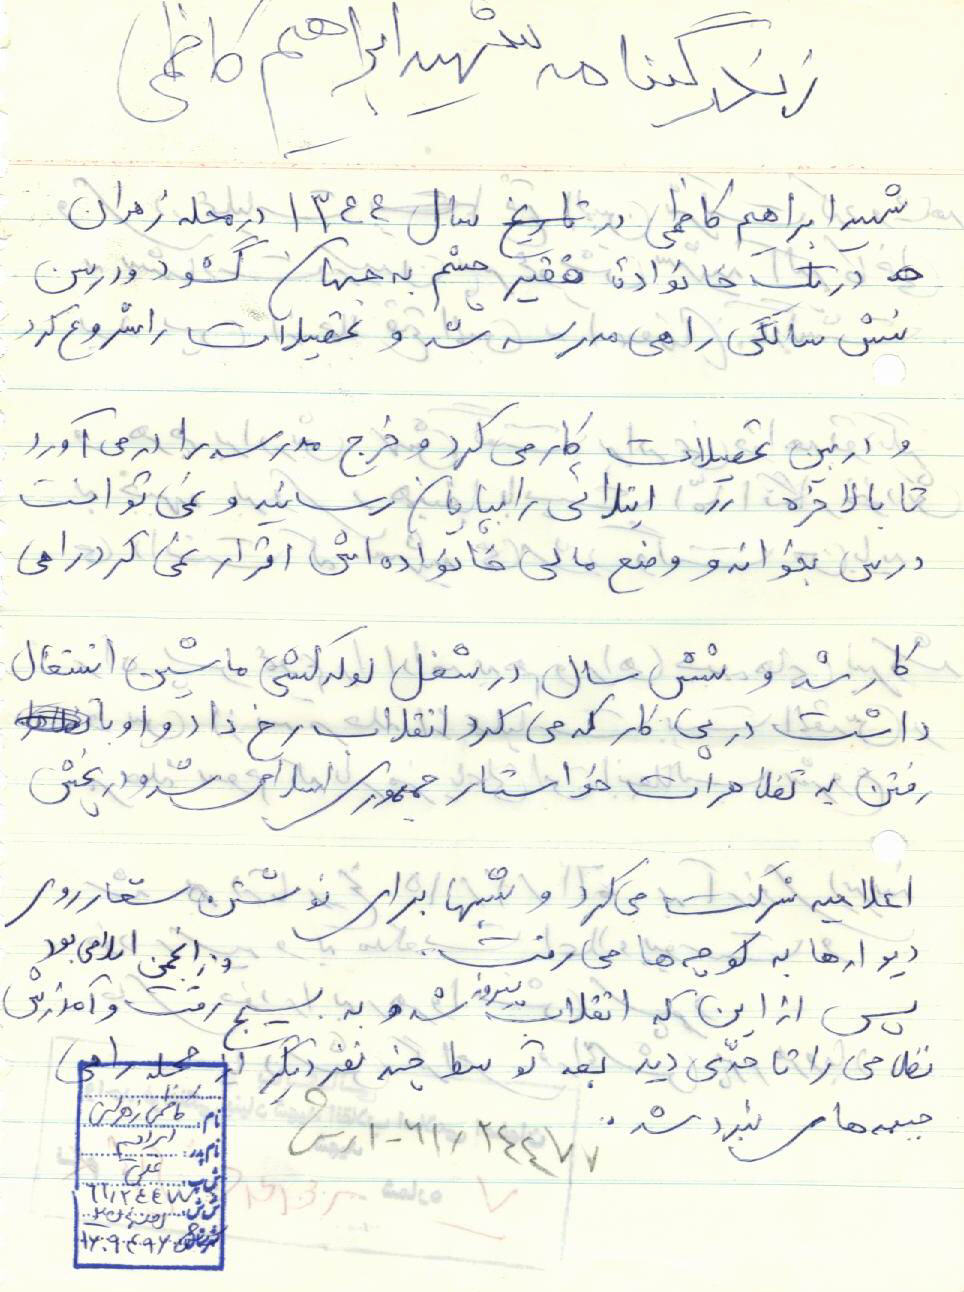 زندگینامه شهید ابراهیم کاظمی
شهید ابراهیم کاظمی در تاریخ سال ۱۳۴۴ در محله زهران
در یک خانوادهٔ فقیر چشم به جهان گشود و در سن
شش سالگی راهی مدرسه شد و تحصیلات را شروع کرد
و در بین تحصیلات کار می کرد و خرج مدرسه را در می آورد
تا بالاخره ابتدائی را بپایان رسانید و نمی توانست
درس بخواند و وضع مالی خانواده اش اقرار نمی کرد راهی
کار شد و شش سال در شغل لوله کشی ماشین اشتغال
داشت در پی کار که می کرد انقلاب رخ داد و او با
رفتن به تظاهرات خواستار جمهوری اسلامی شد و در پخش
اعلامیه شرکت می کرد و شبها برای نوشتن شعار روی
دیوارها به کوچه ها می رفت. و در انجمن اسلامی بود
پس از این که انقلاب پیروز شد و به بسیج رفت و آموزش
نظامی را تا حدّی دید بعد توسط چند نفر دیگر از محله راهی
جبهه های نبرد شد.
۶۱۲۴۴۷۷
نام: کاظمی زهرانی
ابراهیم
نام پدر: علی
ش پ: ۶۱۲۴۴۷۷